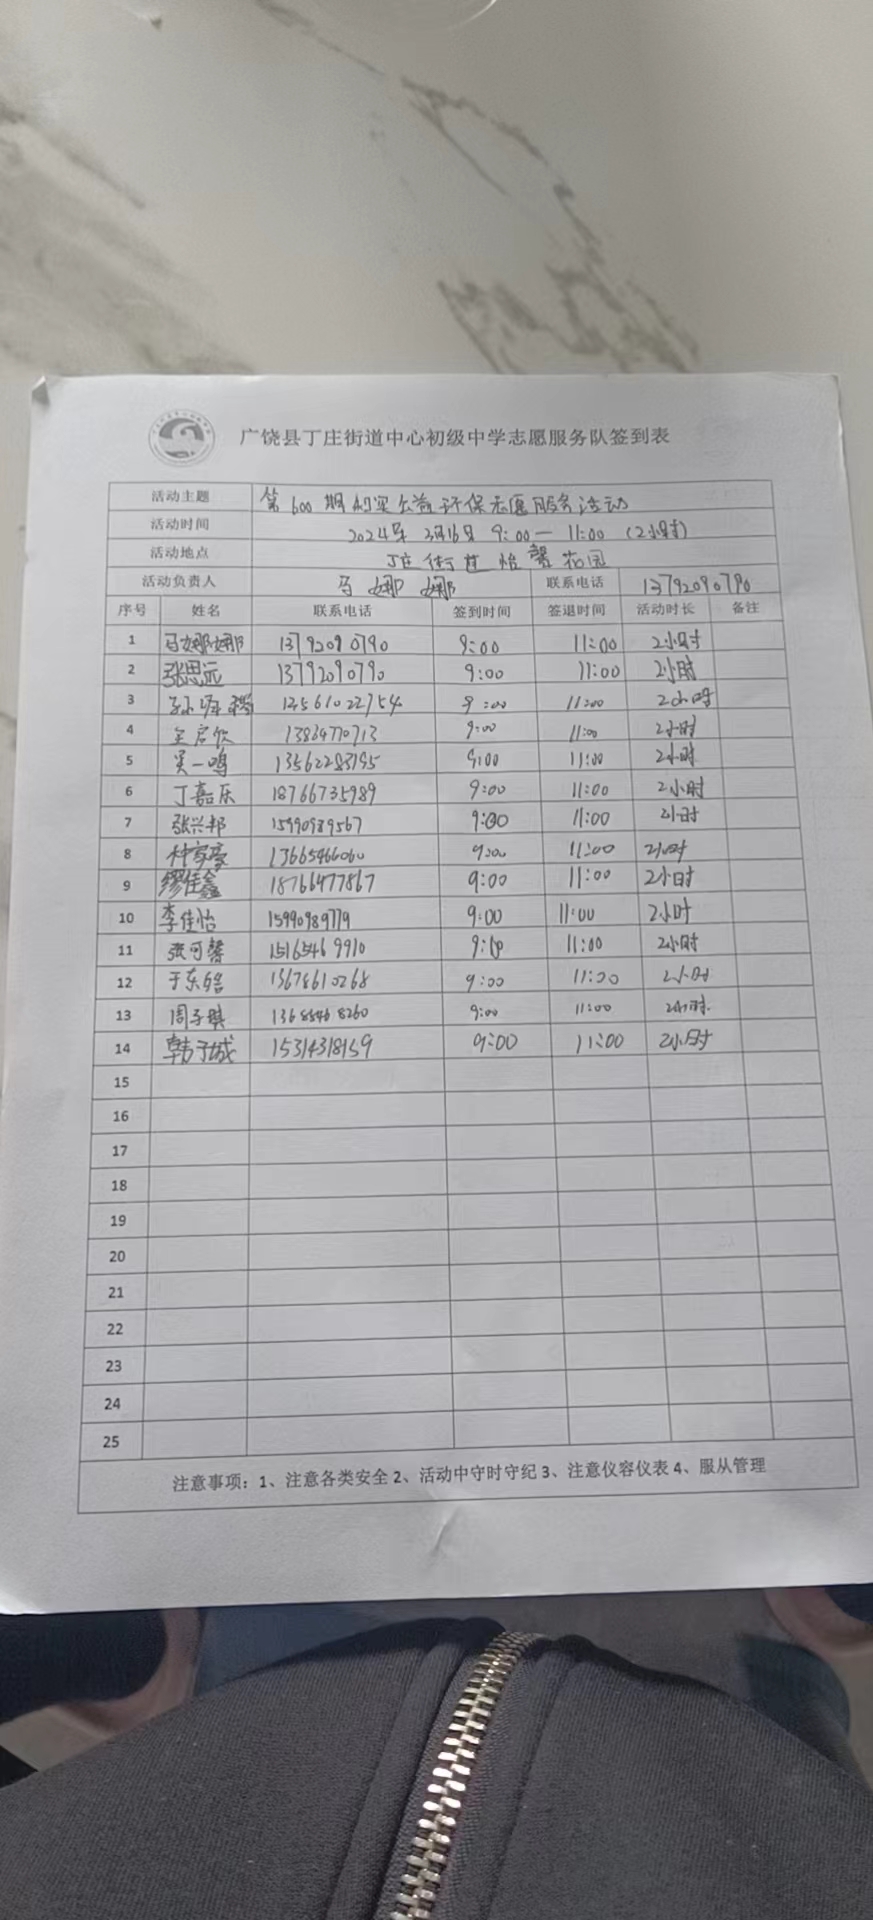 广饶县丁庄街道中心初级中学志愿服务队签到表
活动主题 第600期和实公益环保志愿服务活动
活动时间 2024年 3月16日 9:00—11:00 (2小时)
活动地点 丁庄街道怡馨花园
活动负责人 马娜娜 联系电话 13792090790
序号 姓名 联系电话 签到时间 签退时间 活动时长 备注
1 马娜娜 13792090790 9:00 11:00 2小时
2 张思远 13792090790 9:00 11:00 2小时
3 9:00 11:00 2小时
4 13834770713 9:00 11:00 2小时
5 吴一鸣 13562283195 9:00 11:00 2小时
6 丁嘉乐 18766735989 9:00 11:00 2小时
7 张兴邦 15990989567 9:00 11:00 2小时
8 13665466060 9:00 11:00 2小时
9 缪佳鑫 18766477867 9:00 11:00 2小时
10 李佳怡 15990989779 9:00 11:00 2小时
11 张可馨 15165469910 11:00 2小时
12 13678610268 9:00 11:00 2小时
13 周子琪 13685468260 9:00 11:00 2小时
14 韩子城 15314318159 9:00 11:00 2小时
15
16
17
18
19
20
21
22
23
24
25
注意事项：1、注意各类安全 2、活动中守时守纪 3、注意仪容仪表 4、服从管理